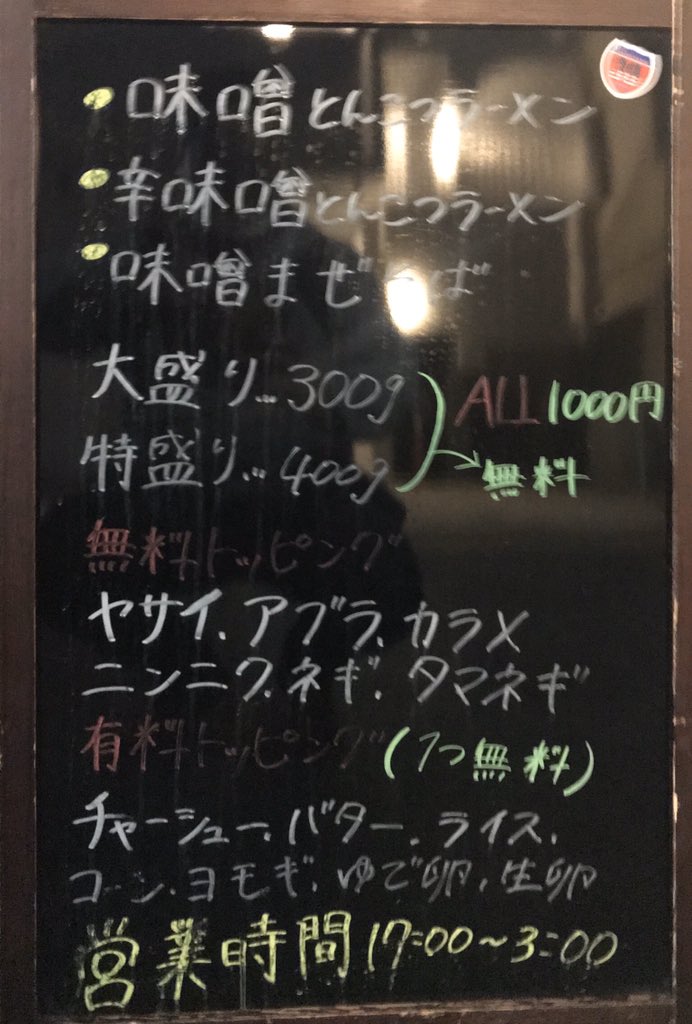 ・味噌とんこつラーメン
・辛味噌とんこつラーメン
・味噌まぜそば
大盛り…300g
特盛り…400g
ALL 1000円
→無料
無料トッピング
ヤサイ、アブラ、カラメ
ニンニク、ネギ、タマネギ
有料トッピング(1つ無料)
チャーシュー、バター、ライス、
コーン、ヨモギ、ゆで卵、生卵
営業時間 17:00~3:00